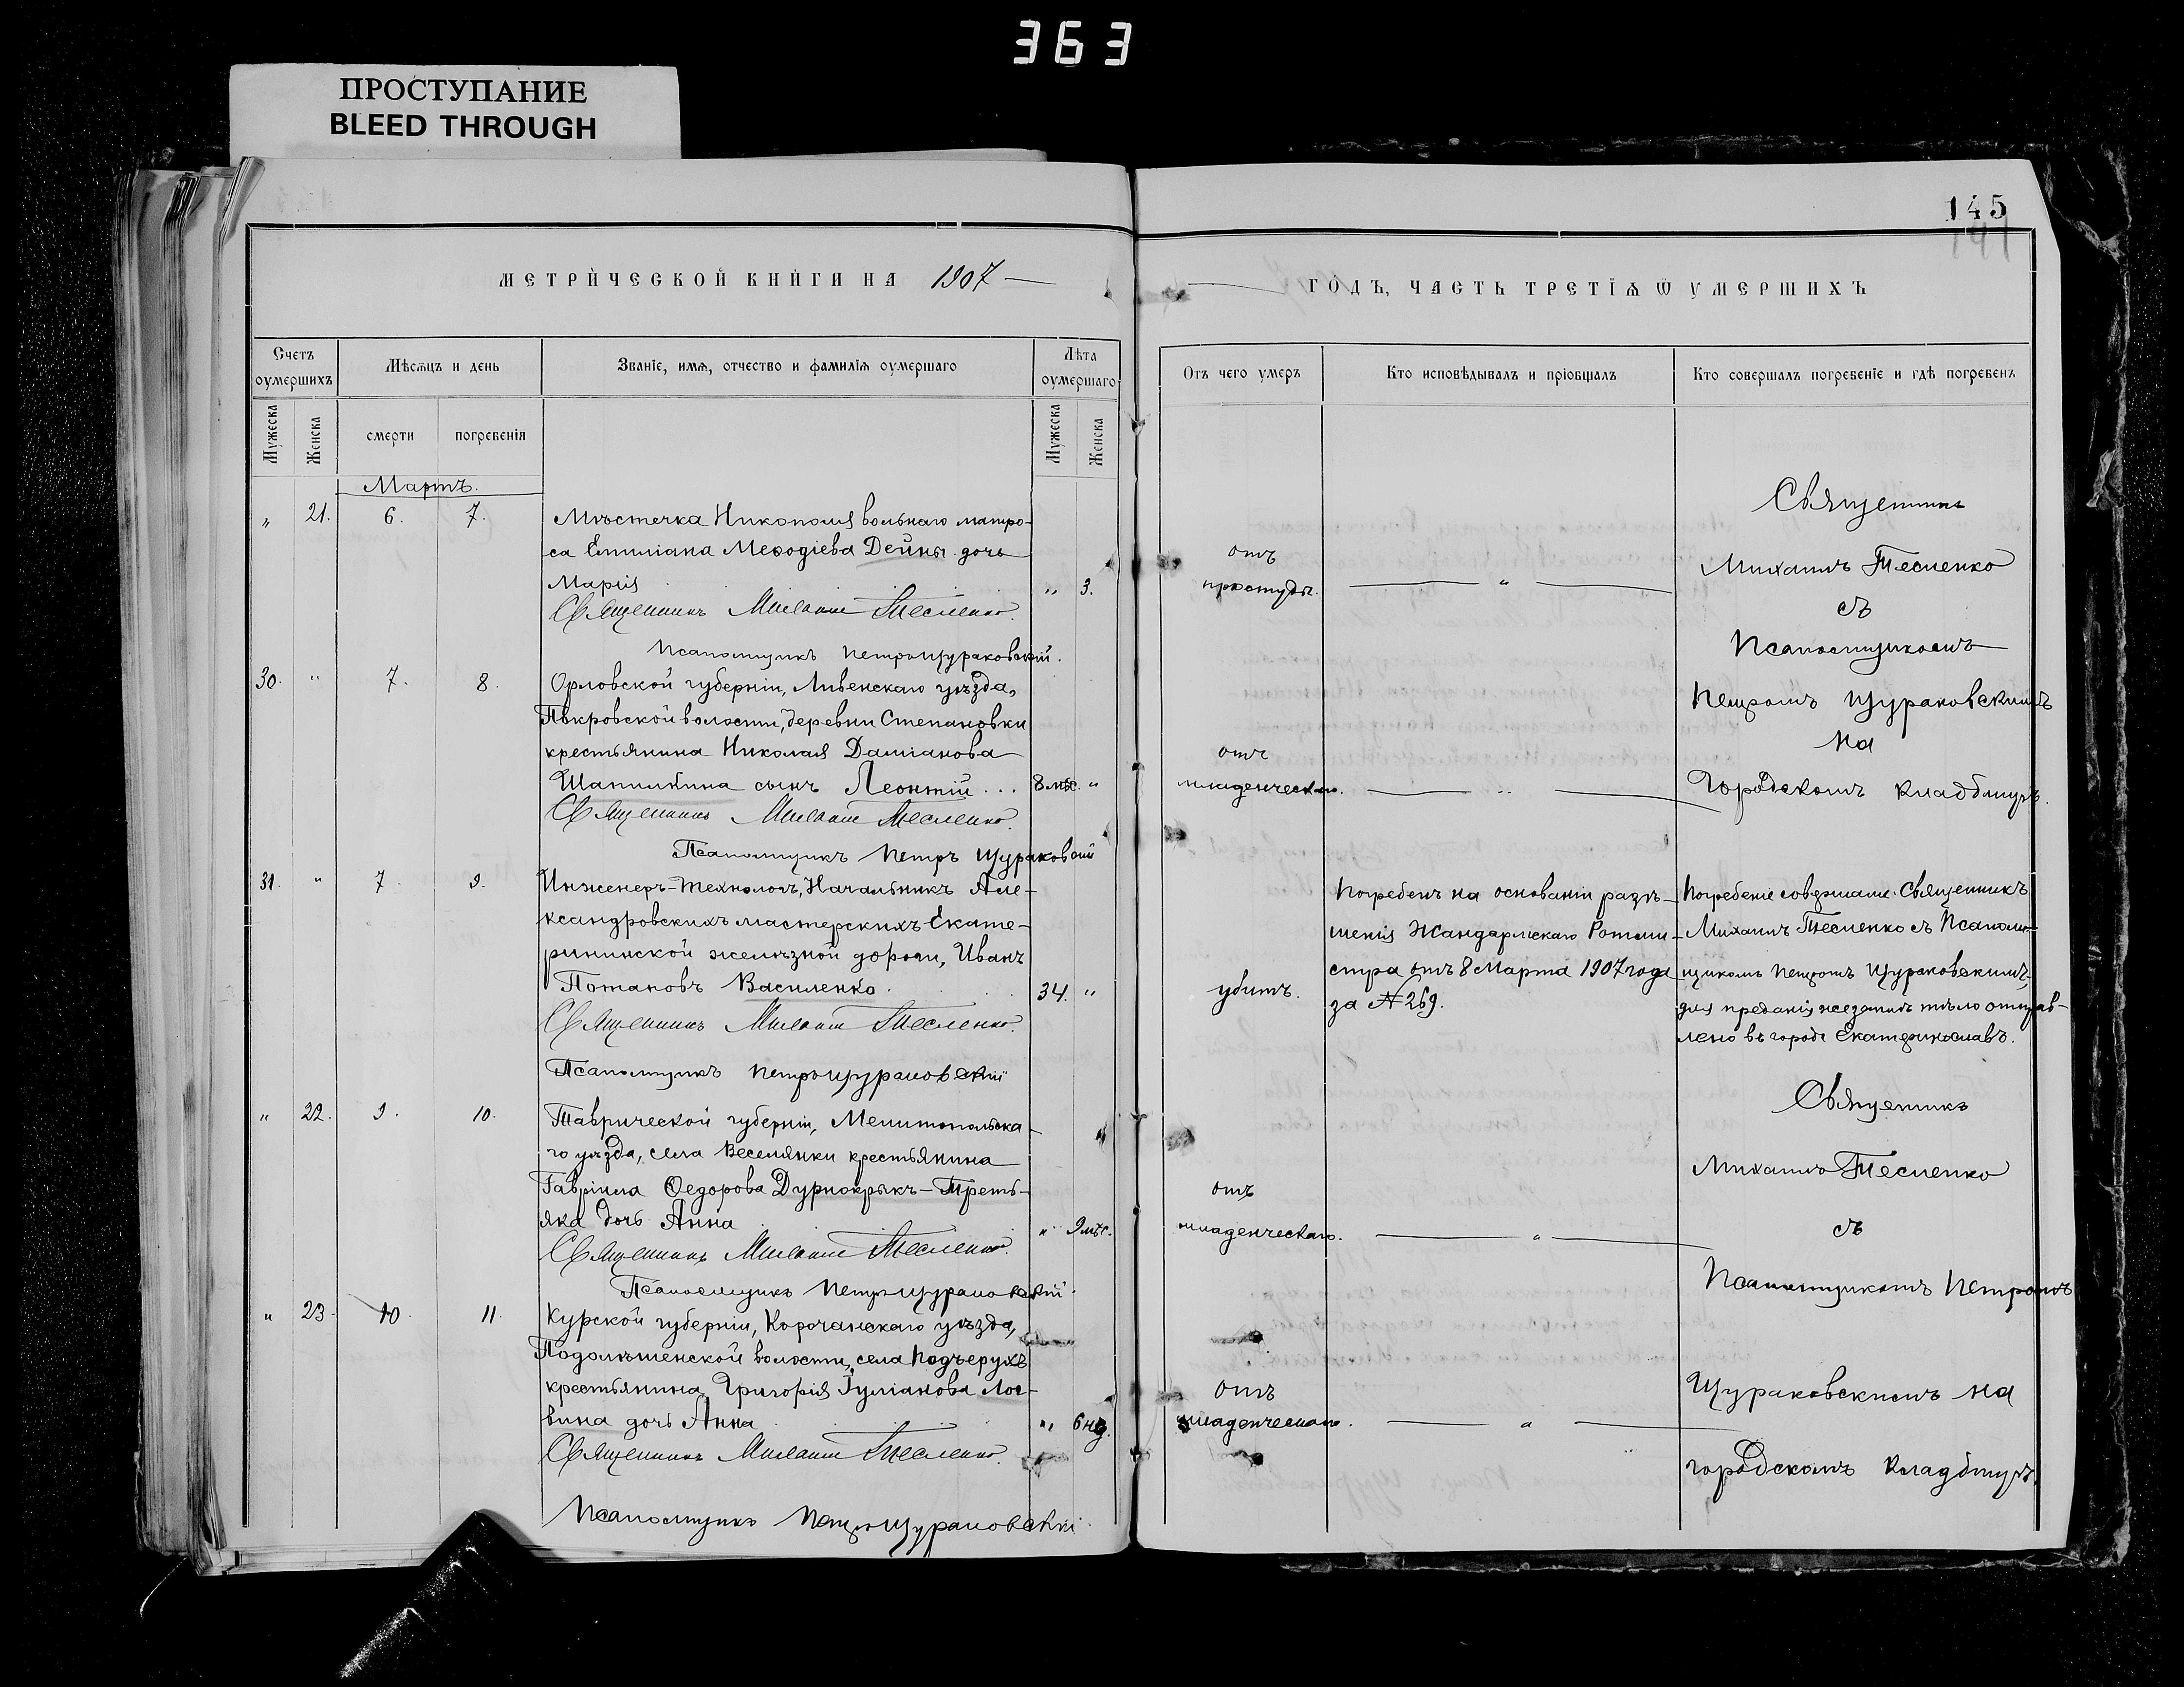 363
ПРОСТУПАНИЕ
BLEED THROUGH
145
МЕТРИЧЕСКОЙ КНИГИ НА 1907 —
Счетъ оумершихъ
Мѣсяцъ и день
Званіе, имя, отчество и фамилія оумершаго
Лѣта оумершаго
Мужеска
Женска
смерти
погребенія
Мужеска
Женска
Мартъ.
" 21. 6. 7. Мѣстечка Никополя вольнаго матро-
са Емиліана Меѳодіева Дейны дочь
Марія " 3.
Священникъ Михаилъ Тесленко.
Псаломщикъ Петръ Щураковскій.
30. " 7. 8. Орловской губерніи, Ливенскаго уѣзда,
Покровской волости, деревни Степановки
крестьянина Николая Даміанова
Шапилкина сынъ Леонтій . . . 8 мѣс. "
Священникъ Михаилъ Тесленко.
Псаломщикъ Петръ Щураковскій
31. " 7. 9. Инженеръ-Технологъ, Начальникъ Але-
ксандровскихъ мастерскихъ Екате-
рининской желѣзной дороги, Иванъ
Потаповъ Василенко 34. "
Священникъ Михаилъ Тесленко.
Псаломщикъ Петръ Щураковскій
" 22. 9. 10. Таврической губерніи, Мелитопольска-
го уѣзда, села Веселянки крестьянина
Гавріила Ѳедорова Дурнокрыкъ-Треть-
яка дочь Анна " 9 мѣс.
Священникъ Михаилъ Тесленко.
Псаломщикъ Петръ Щураковскій.
" 23. 10 11. Курской губерніи, Корочанскаго уѣзда,
Подолѣшенской волости, села Подъерухъ
крестьянина Григорія Іуліанова Лог-
вина дочь Анна " 6 нд.
Священникъ Михаилъ Тесленко.
Псаломщикъ Петръ Щураковскій
ГОДЪ, ЧАСТЬ ТРЕТІЯ Ѿ УМЕРШИХЪ
Отъ чего умеръ
Кто исповѣдывалъ и пріобщалъ
Кто совершалъ погребеніе и гдѣ погребенъ
отъ
простуды. — " —
Священникъ
Михаилъ Тесленко
съ
Псаломщикомъ
Петромъ Щураковскимъ
на
Городскомъ кладбищѣ.
отъ
младенческаго. — " —
убитъ.
Погребенъ на основаніи разрѣ-
шенія Жандармскаго Ротми-
стра отъ 8 Марта 1907 года
за № 269.
Погребеніе совершали: Священникъ
Михаилъ Тесленко съ Псалом-
щикомъ Петромъ Щураковскимъ,
для преданія же землѣ тѣло отправ-
лено въ городъ Екатеринославъ.
отъ
младенческаго. — " —
Священникъ
Михаилъ Тесленко
съ
Псаломщикомъ Петромъ
Щураковскимъ на
городскомъ кладбищѣ.
отъ
младенческаго. — " —